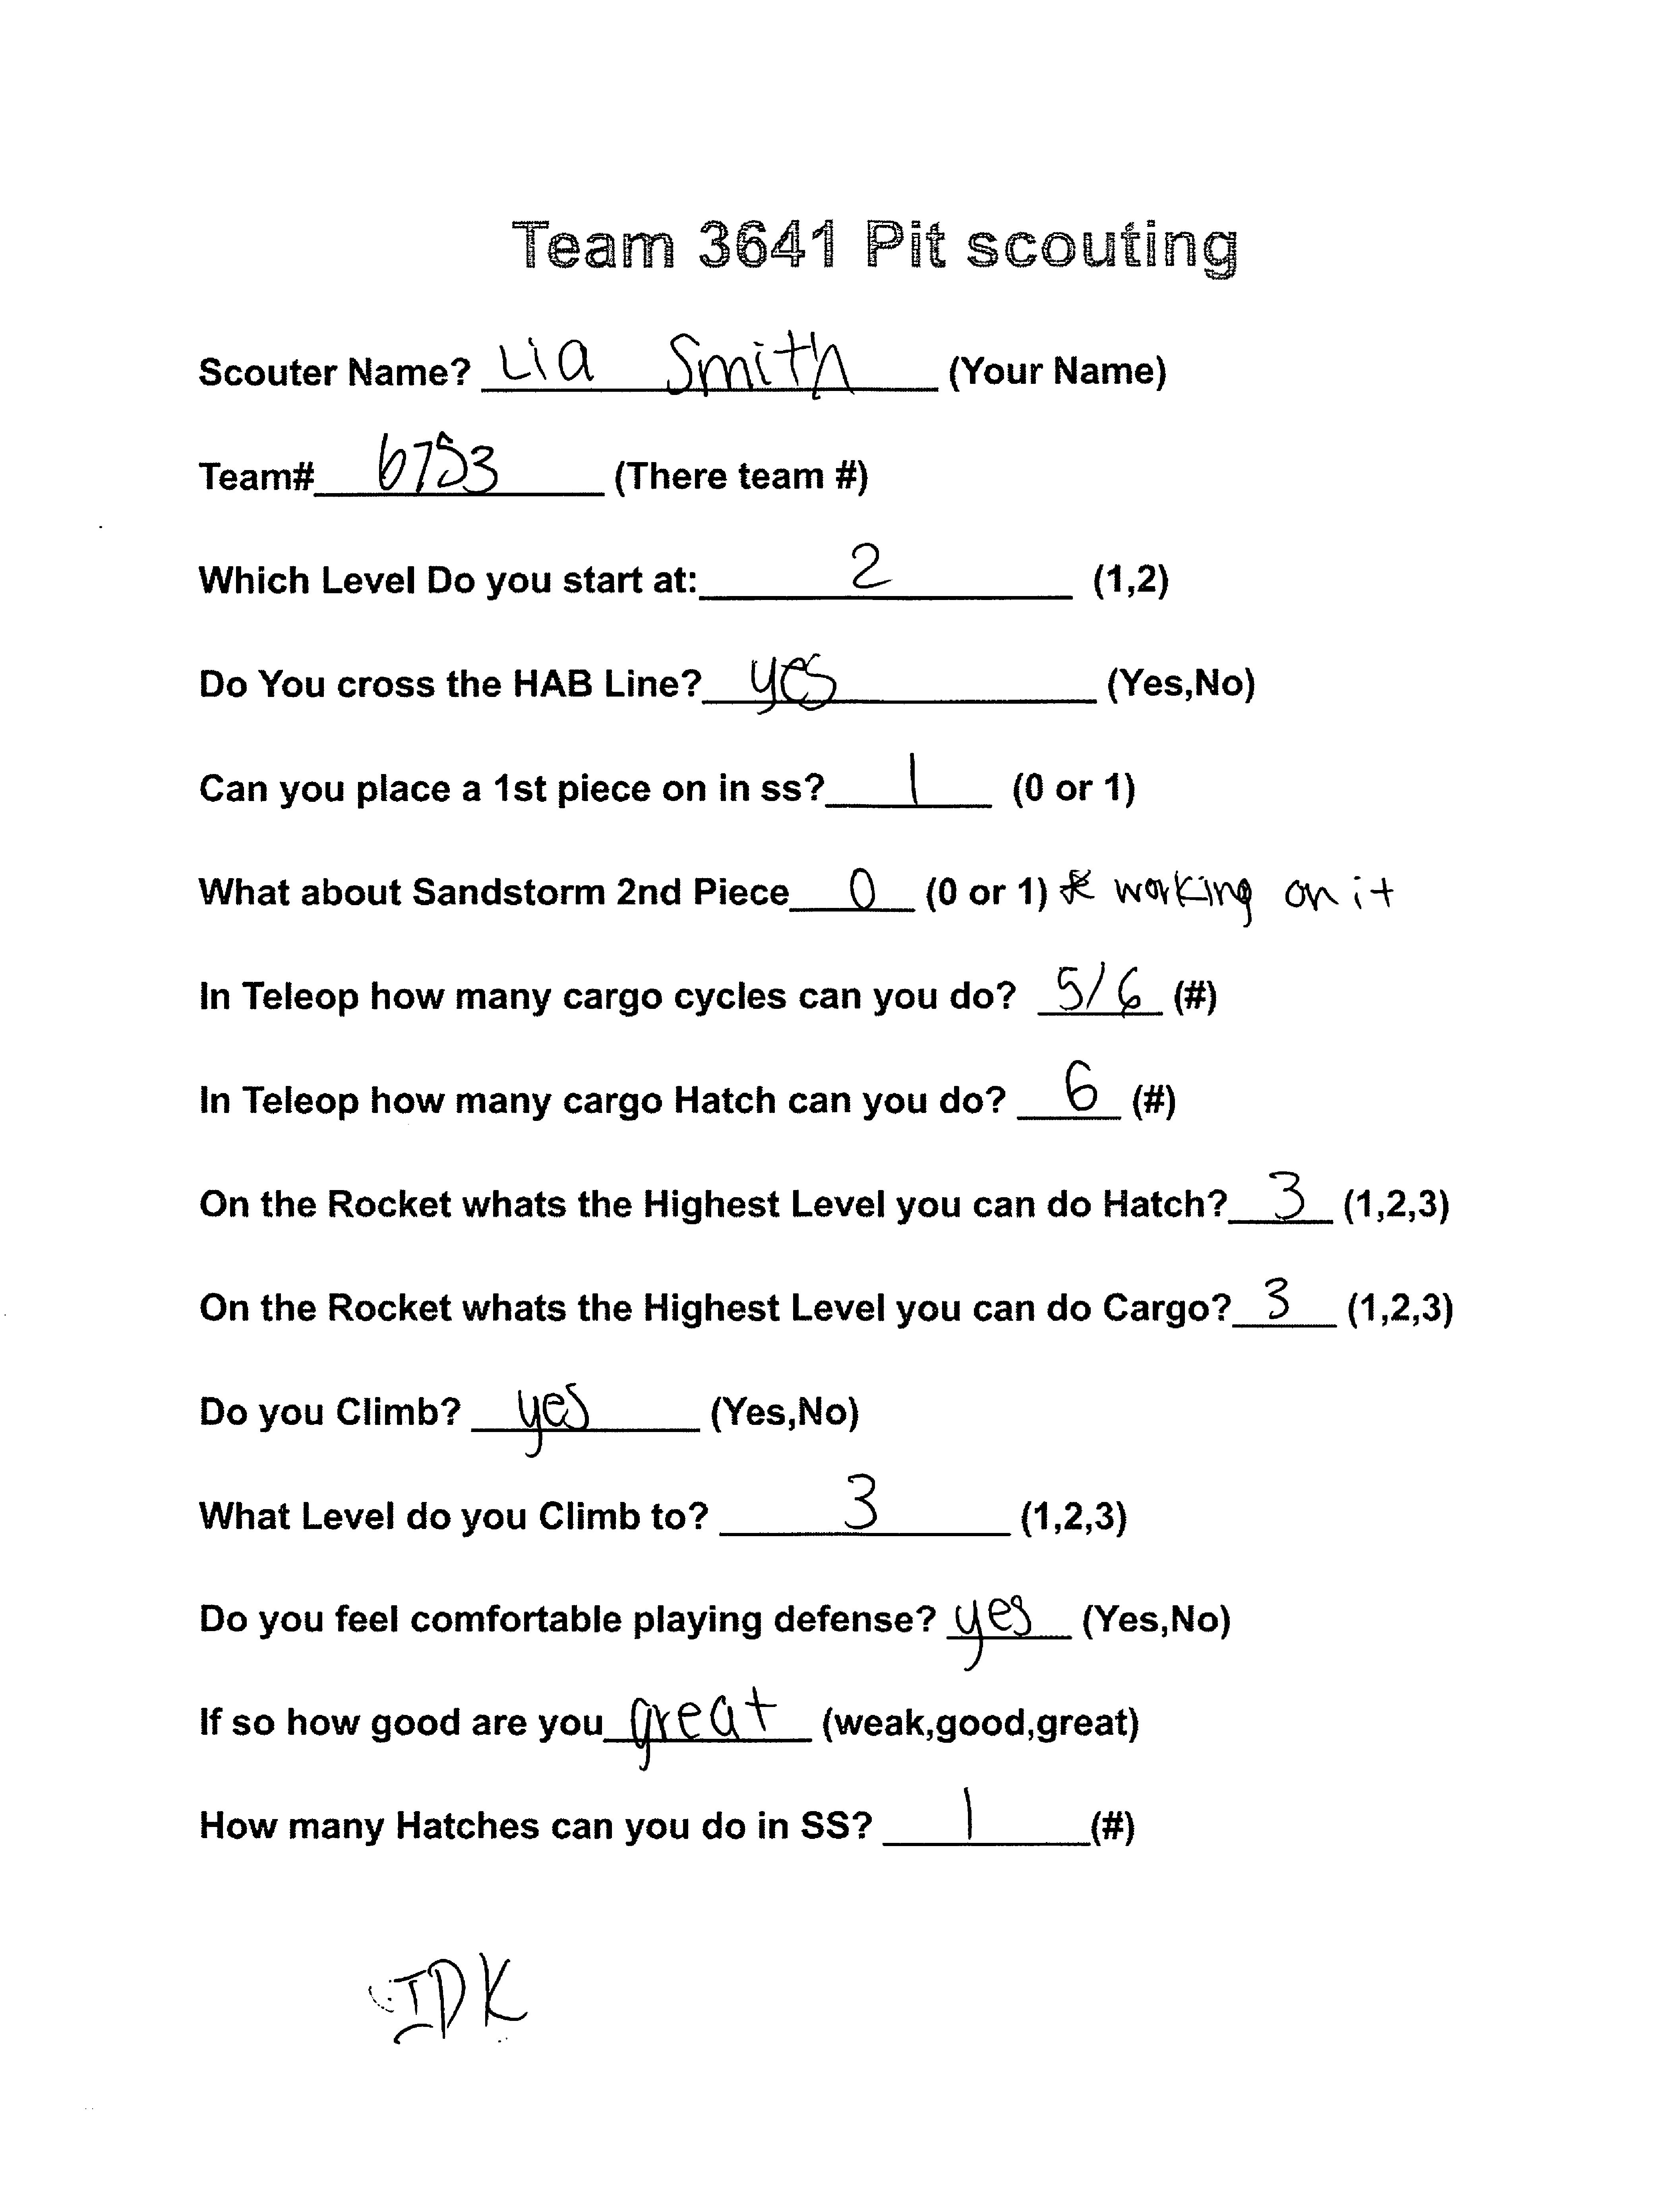 Team 3641 Pit scouting
Scouter Name? Lia Smith (Your Name)
Team# 6753 (There team #)
Which Level Do you start at: 2 (1,2)
Do You cross the HAB Line? yes (Yes,No)
Can you place a 1st piece on in ss? 1 (0 or 1)
What about Sandstorm 2nd Piece 0 (0 or 1) * working on it
In Teleop how many cargo cycles can you do? 5/6 (#)
In Teleop how many cargo Hatch can you do? 6 (#)
On the Rocket whats the Highest Level you can do Hatch? 3 (1,2,3)
On the Rocket whats the Highest Level you can do Cargo? 3 (1,2,3)
Do you Climb? yes (Yes,No)
What Level do you Climb to? 3 (1,2,3)
Do you feel comfortable playing defense? yes (Yes,No)
If so how good are you great (weak,good,great)
How many Hatches can you do in SS? 1 (#)
IDK